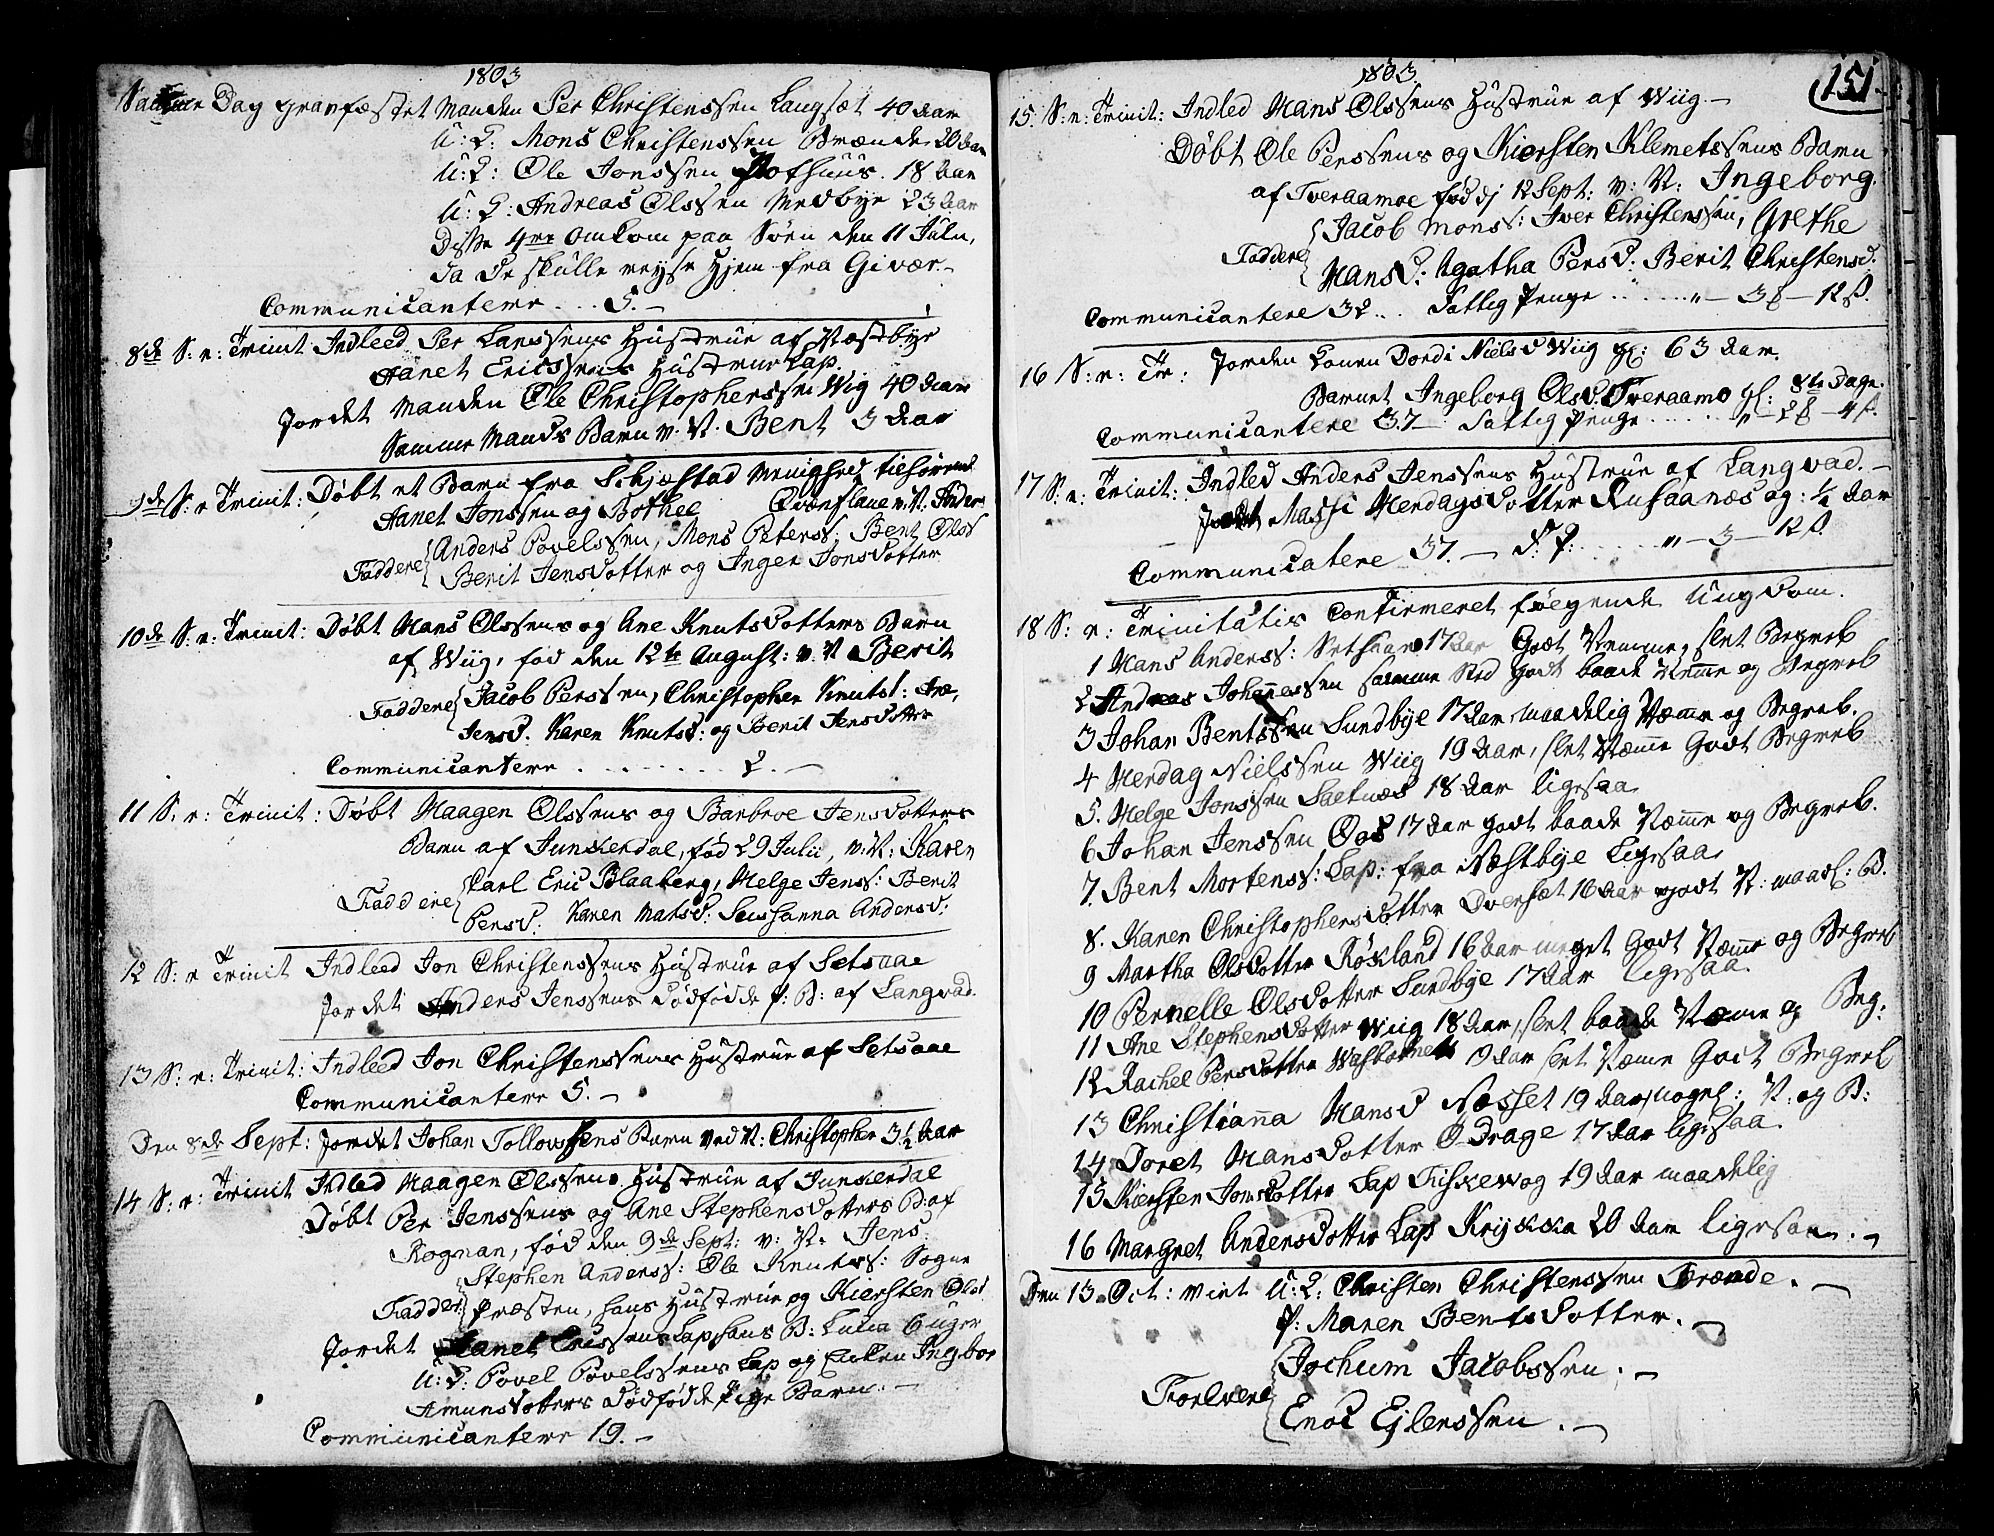 1803
Samme Dag gravfæstet Manden Per Christenssen Langsæt 40 Aar
U: K: Mons Christenssen Brænde 20 Aar
U: K: Ole Jonssen Hofhuus. 18 Aar
U: K: Andreas Olssen Medbye 23 Aar
Disse 4re omkom paa Søen den 11 Julii,
da de skulle reyse hjem fra Givær.-
Communicantere . . . 5. –
8de S: e: Trinit Indleed Per Larssens Hustrue af Vestbye
Hanet Ericssens Hustrue Lap.
Jordet Manden Ole Christopherssen Wiig 40 Aar
Samme Mands Barn v. N. Bent 3 Aar
9de S: e Trinit: Døbt et Barn fra Schjæstad Menighed tilhørende
Hanet Jonssen og Bothel Qvænslane v. N. Anders
Faddere Anders Povelssen, Mons Peterss: Bent Olss
Berit Jensdotter og Inger Jonsdotter
10de S: e: Trinit: Døbt Hans Olssens og Ane Knutsdotters Barn
af Wiig, fød den 12te August: v. N Berit
Faddere Jacob Perssen, Christopher Knuts:
Jensd: Karen Knutsd: og Berit Jensdotter
Communicantere . . . . . . . . 2. –
11 S: e: Trinit: Døbt Haagen Olssens og Barbroe Jensdotters
Barn af Junkerdal, fød 29 Julii, v: N: Karen
Faddere Carl Eric Blaaberg, Helge Jenss: Berit
Persd: Karen Matsd: Sussanna Andersd:
12 S: e Trinit Indleed Jon Christenssens Hustrue af Setsaae
Jordet Anders Jenssens dødfødde P: B: af Langvad.
13 S: e: Trinit: Indleed Jon Christenssens Hustrue af Setsaae
Communicantere 5. –
Den 8de Sept: Jordet Johan Tollovssens Barn ved N: Christopher 3½ Aar
14 S: e: Trinit Indled Haagen Olssens Hustrue af Junkerdal
Døbt Per Jenssens og Ane Stephensdotters B: af
Rognan, fød den 9de Sept: v: N. Jens.
Stephen Anderss: Ole Knutss: Sogne
Fadder: Præsten, hans Hustrue og Kiersten Olsd
Jordet Hanet Ericssens Lap hans B: Lucia 6 uger
U: K: Povel Povelssens Lap og Enken Ingbor
Amunsdotters dødfødde Pige Barn. –
Communicantere 19. –
1803.
151
15. S: e: Trinit: Indled Hans Olssens Hustrue af Wiig. –
Døbt Ole Perssens og Kiersten Klemetssens Barn
af Tveraamoe fød dj 12 Sept: v: N: Ingeborg.
Faddere Jacob Monss: Iver Christenssen, Grethe
Hansd: Agatha Persd: Berit Christensd.
Communicantere 32 . . . Fattig Penge . . . . . „ – 3 ß – 12 ß.
16 S: e: Tr: Jorden Konen Dordi Nielsd Wiig gl: 63 Aar.
Barnet Ingeborg Olsd. Tveraamo gl: 8te Dage.
Communicantere 37 – Fattig Penge . . . . . . „ – 2 ß – 4 ß.
17 S: e: Trinit: Indled Anders Jenssens Hustrue af Langvad. –
Jordet Massi Herdagsdotter Rusaanæs og: ¼ Aar
Communicatere 37. – F: P: . . . . . „ – 3 – 12 ß.
18 S: e: Trinitatis Confirmeret følgende Ungdom.
1 Hans Anderss: Setsaae 17 Aar Godt Nemme, slet Begreb
2 Andreas Johanessen samme Sted godt baade Nemme og Begreb
3 Johan Bentssen Sundbye 17 Aar maadelig Næme og Begreb.
4 Herdag Nielssen Wiig 19 Aar, slet Næme Godt Begreb
5. Helge Jonssen Saltnæs 18 Aar ligesaa
6 Johan Jenssen Oas 17 Aar godt baade Næme og Begreb.
7. Bent Mortenss: Lap: fra Næstbye Ligesaa
8. Karen Christophersdotter Dverset 16 Aar godt N: maadl: B.
9 Martha Olsdotter Røkland 16 Aar meget Godt Næme og Begreb
10 Pernelle Olsdotter Sundbye 17 Aar ligesaa
11 Ane Stephensdotter Wiig 18 Aar, slet baade Næme og Beg:
12 Rachel Persdotter 19 Aar slet Næme Godt Begreb
13 Christianna Hansd Næsset 19 Aar, nogl: N. og B:
14 Doret Hansdotter Drage 17 Aar ligesaa
15 Kiersten Jonsdotter Lap Fiskevog 19 Aar maadelig
16 Margret Andersdotter Lap Krykka 20 Aar ligesaa. –
Den 13. Oct: viet U: K: Christen Christenssen Brænde. –
P: Maren Bentsdotter. –
Forlovere Jochum Jacobssen. –
Enoc Ejlerssen. –